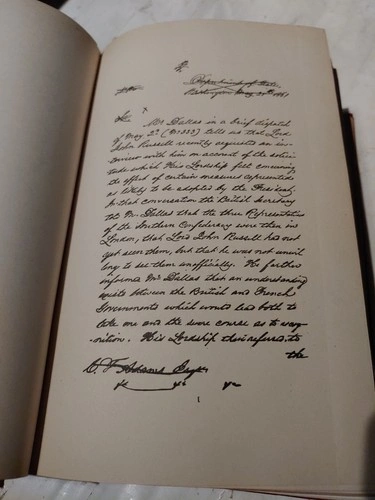 Department of State,
Washington May 21st 1861
Sir
Mr Dallas in a brief dispatch
of May 2d (No 333) tells us that Lord
John Russell recently requested an in-
terview with him on account of the solici-
tude which His Lordship felt concerning
the effect of certain measures represented
as likely to be adopted by the President.
In that conversation the British Secretary
told Mr Dallas that the three Representatives
of the Southern Confederacy were then in
London, that Lord John Russell had not
yet seen them, but that he was not unwil-
ling to see them unofficially. He farther
informed Mr Dallas that an understanding
exists between the British and French
Governments which would lead both to
take one and the same course as to recog-
nition. His Lordship then referred to
the
C. F. Adams Esqr
1